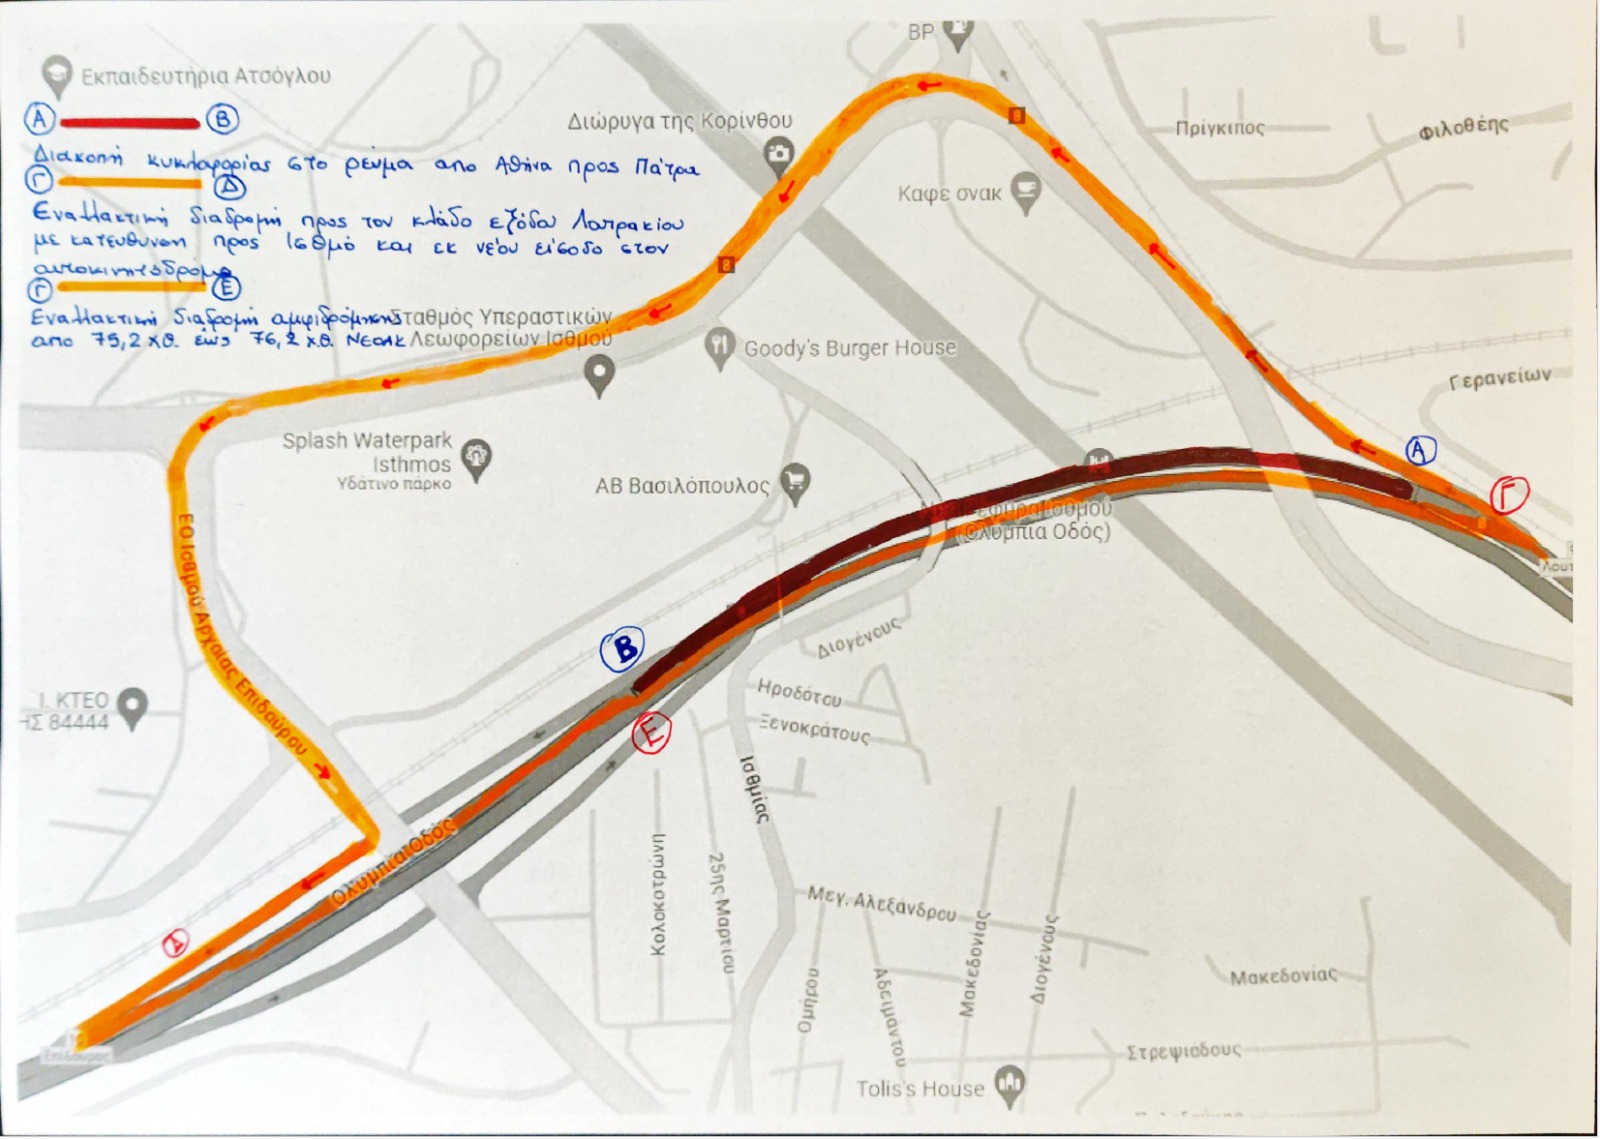 BP
Εκπαιδευτήρια Ατσόγλου
Α Β
Διώρυγα της Κορίνθου
Πρίγκιπος
Φιλοθέης
Διακοπή κυκλοφορίας στο ρεύμα απο Αθήνα προς Πάτρα
Γ Δ
Καφε σνακ
Εναλλακτική διαδρομή προς τον κλάδο εξόδου Λουτρακίου
με κατεύθυνση προς Ισθμό και εκ νέου είσοδο στον
αυτοκινητόδρομο
8
8
Γ Ε
Εναλλακτική διαδρομή αμφιδρόμηση
απο 75,2 χθ. έως 76,2 χ.θ. ΝΕΟΑΚ
Σταθμός Υπεραστικών
Λεωφορείων Ισθμού
Goody's Burger House
Γερανείων
Splash Waterpark
Isthmos
Υδάτινο πάρκο
ΑΒ Βασιλόπουλος
Α
Γ
Γέφυρα Ισθμού
(Ολυμπία Οδός)
Λουτ
ΕΟ Ισθμού Αρχαίας Επιδαύρου
Β
Διογένους
Ι. ΚΤΕΟ
ΗΣ 84444
Ηροδότου
Ξενοκράτους
Ε
Ισθμίας
Ολυμπία Οδός
Κολοκοτρώνη
25ης Μαρτίου
Μεγ. Αλεξάνδρου
Μακεδονίας
Διογένους
Δ
Μακεδονίας
Ομήρου
Αδειμάντου
Επίδαυρος
Στρεψιάδους
Tolis's House